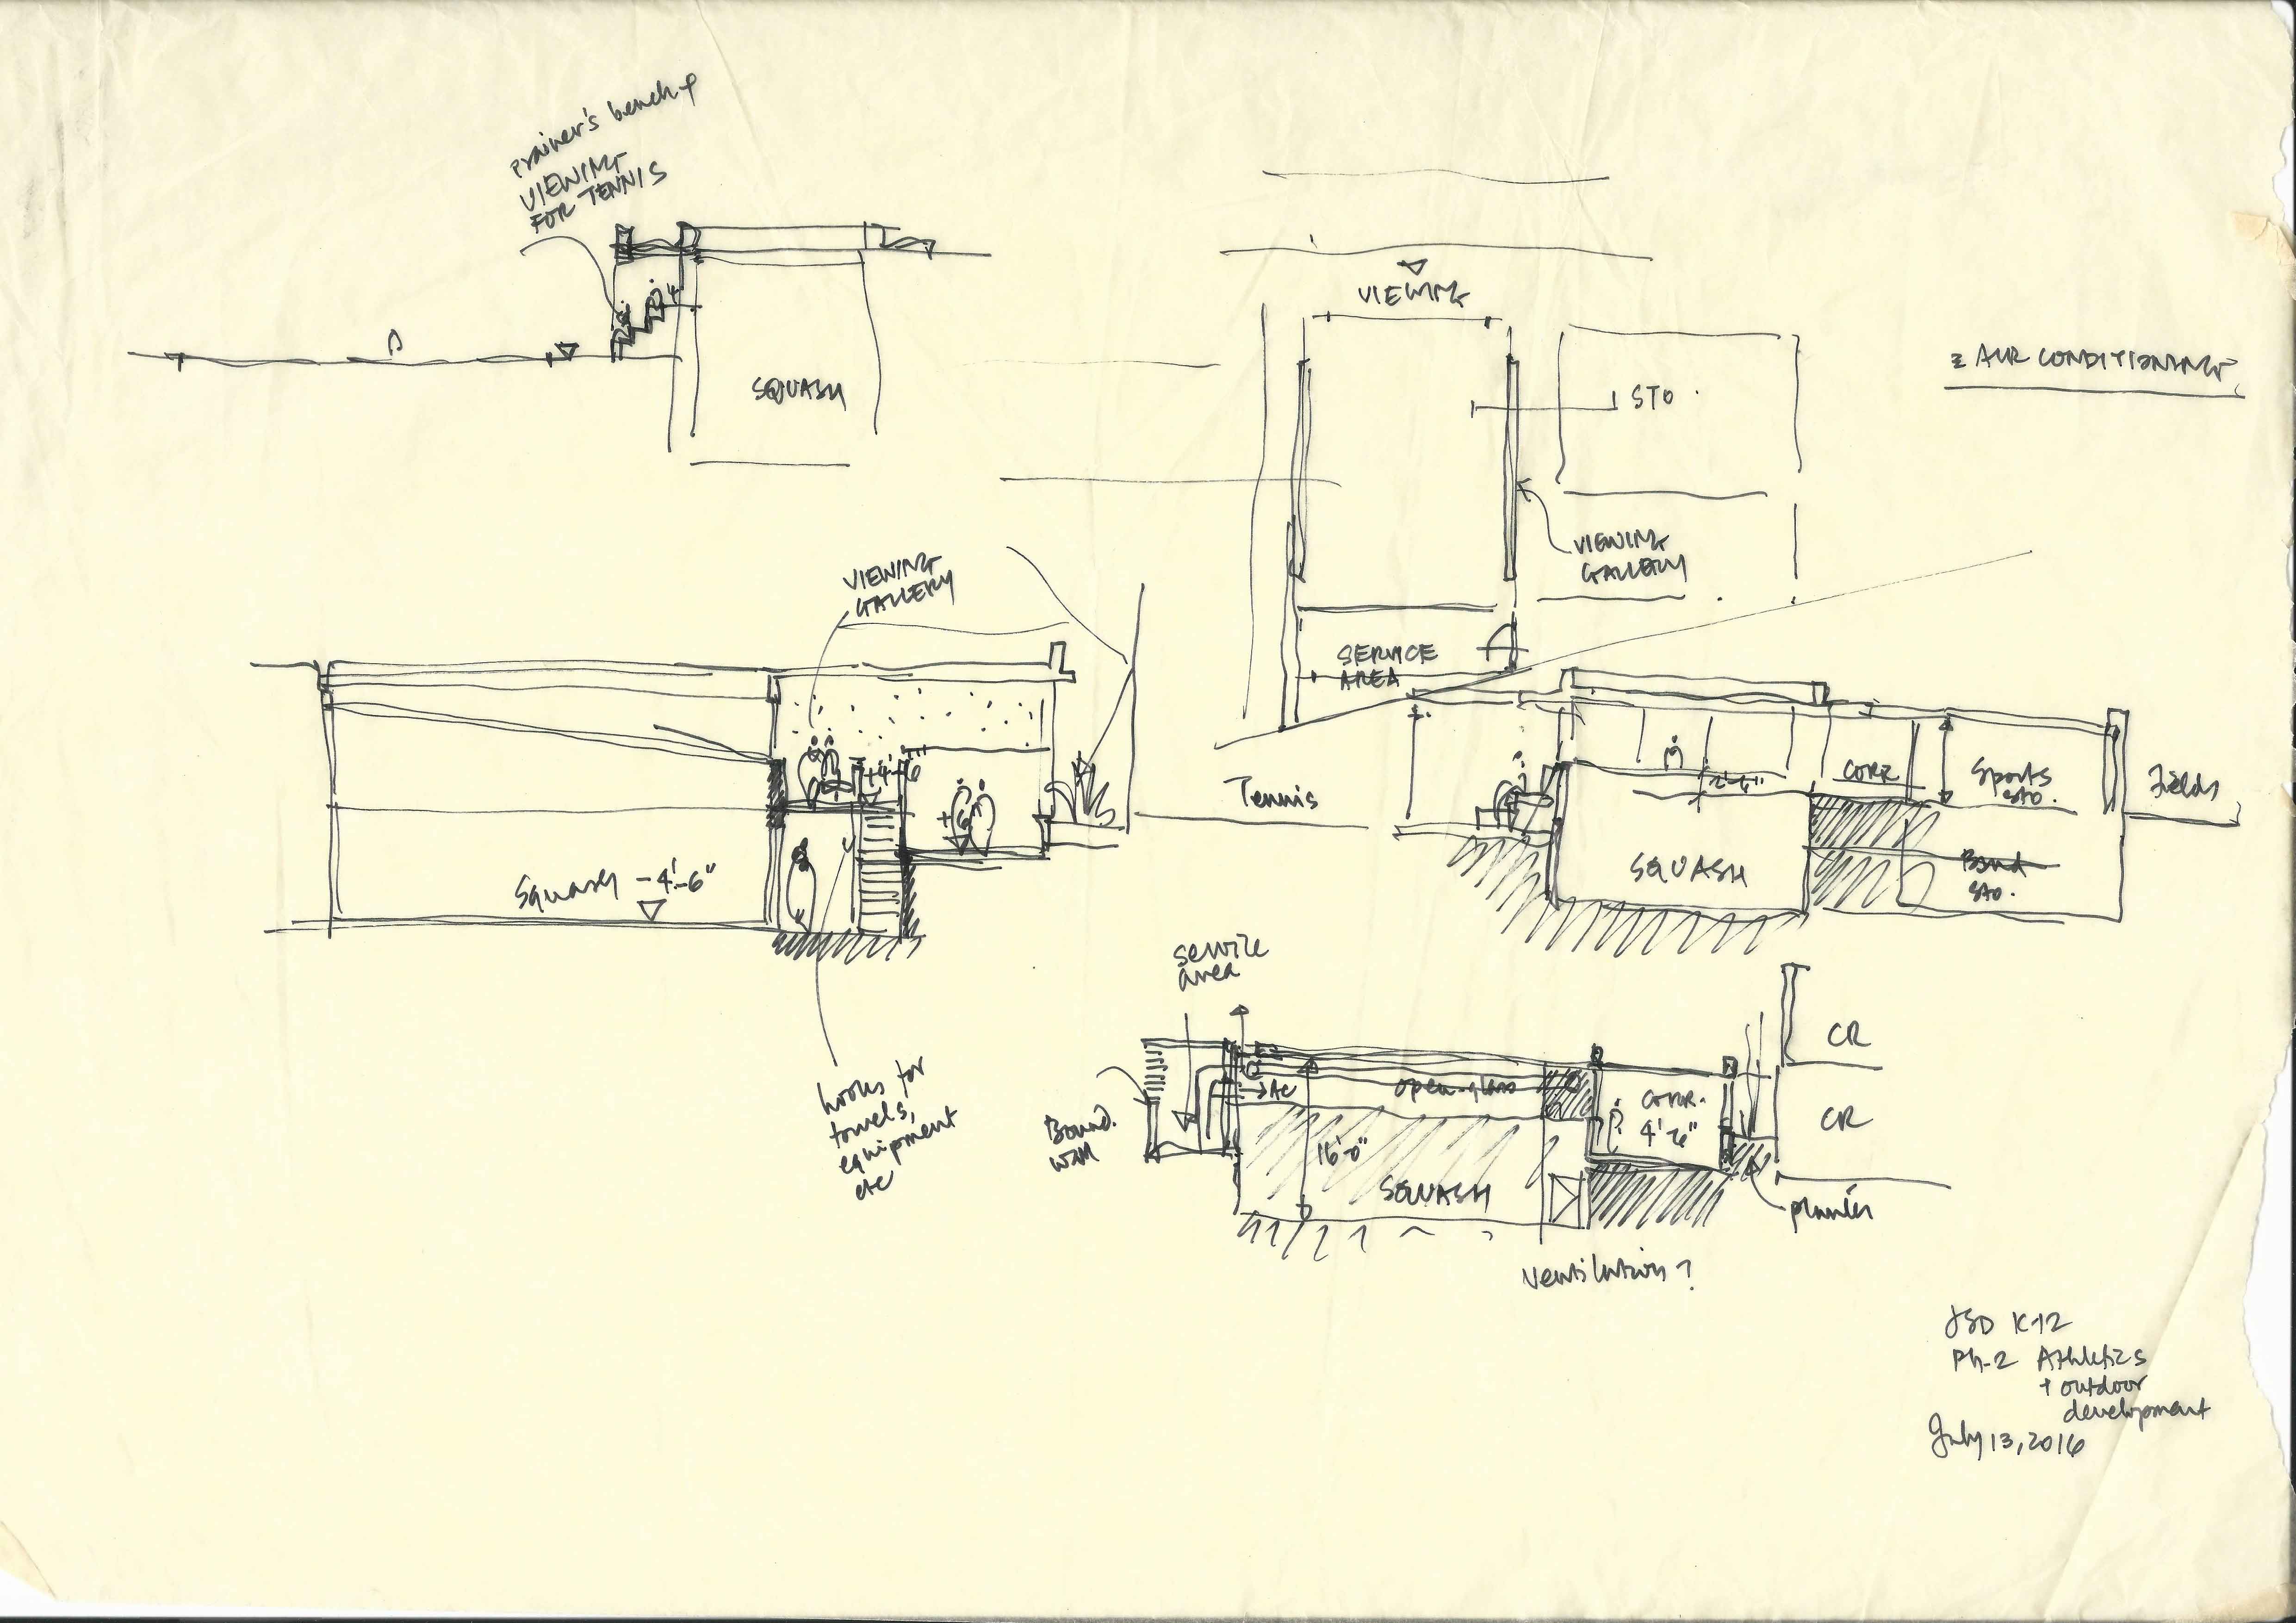 trainer's bench +
VIEWING
FOR TENNIS
SQUASH
VIEWING
STO
AIR CONDITIONING
VIEWING
GALLERY
SERVICE
AREA
VIEWING
GALLERY
+4'-6"
+6"
Squash -4'-6"
hooks for
towels,
equipment
etc
Tennis
2'-6"
CORR
Sports
sto.
Fields
SQUASH
Band
sto.
service
area
Bound.
wall
AC
open-glass
16'-0"
SQUASH
CORR.
4'-6"
CR
CR
planter
ventilation?
JSD K-12
Ph-2 Athletics
+ outdoor
development
July 13, 2016